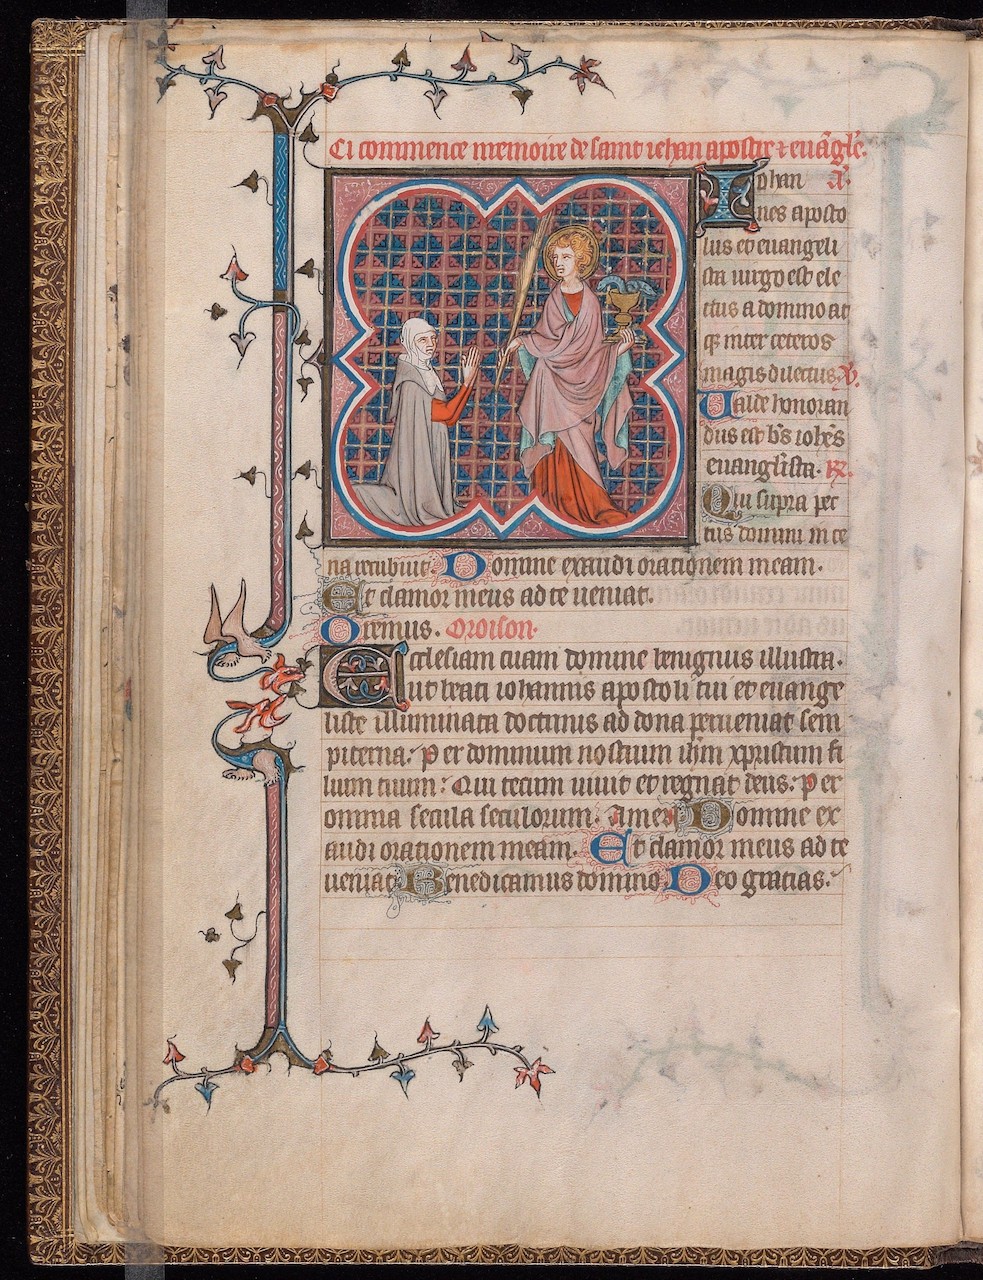 Ci commence memoire de saint iehan apostre ⁊ euãgle.
Iohan A.
nes aposto
lus et euangeli
sta uirgo est ele
ctus a domino at
qȝ inter ceteros
magis dilectus. V.
Ualde honoran
dus est bs iohes
euanglista. R.
Qui supra pec
tus domini in ce
na recubuit. Domine exaudi orationem meam.
Et clamor meus ad te ueniat.
Oremus. Oroison.
Ecclesiam tuam domine benignus illustra.
ut beati iohannis apostoli tui et euange
liste illuminata doctrinis ad dona perueniat sem
piterna. Per dominum nostrum ihm xpristum fi
lium tuum. Qui tecum uiuit et regnat deus. Per
omnia secula seculorum. Amen Domine ex
audi orationem meam. Et clamor meus ad te
ueniat Benedicamus domino Deo gracias.